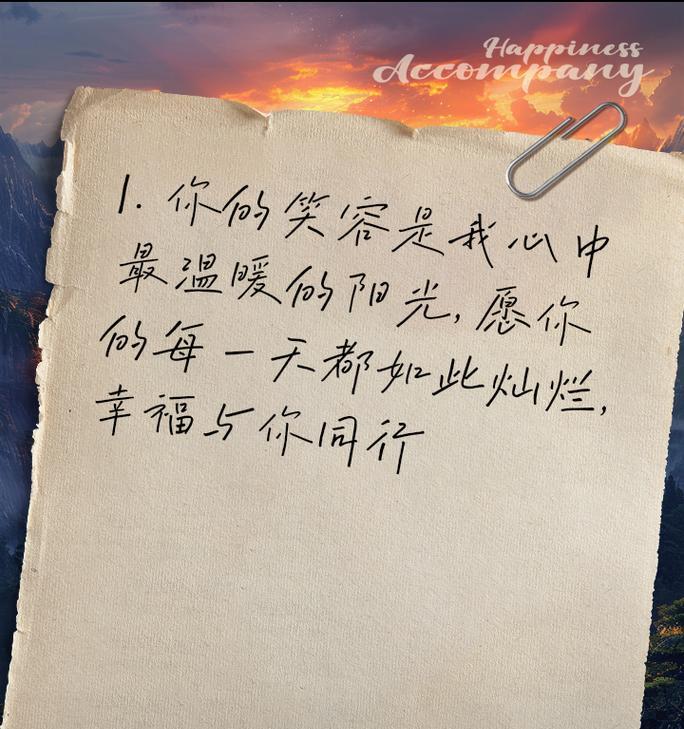 Happiness
Accompany
1. 你的笑容是我心中
最温暖的阳光,愿你
的每一天都如此灿烂,
幸福与你同行